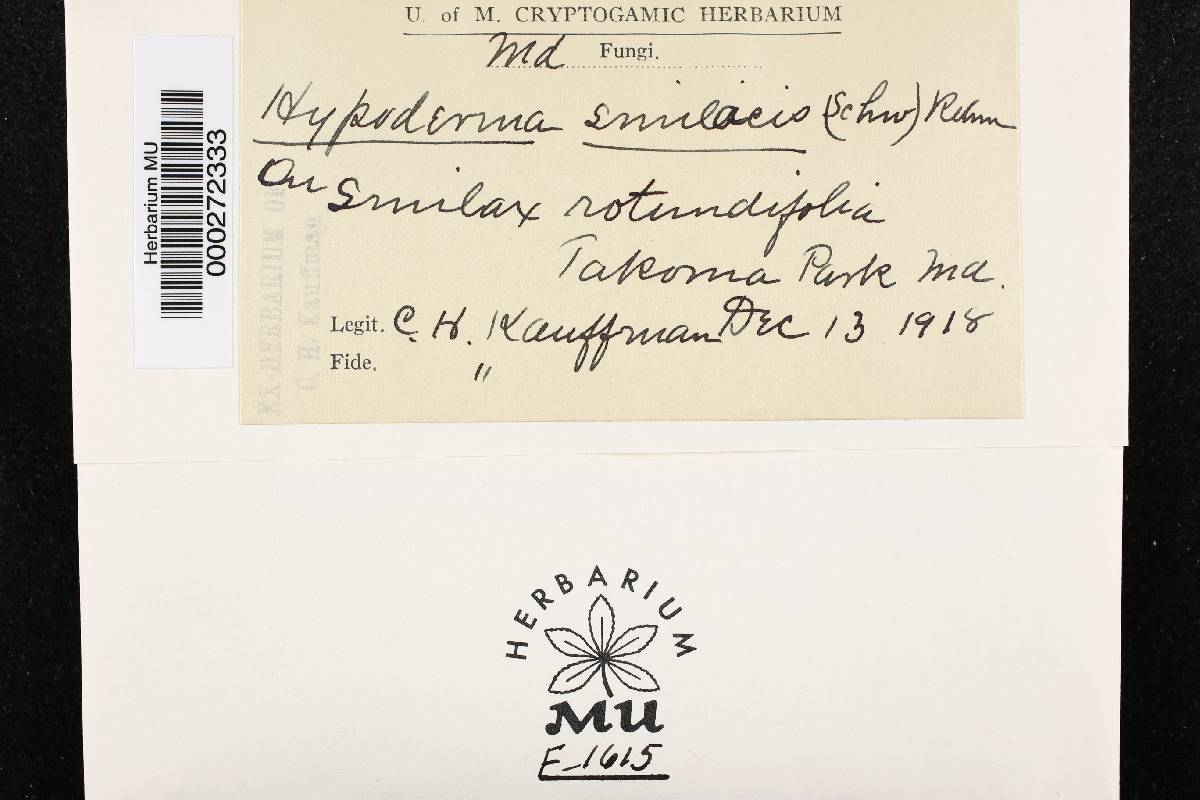 U. of M. CRYPTOGAMIC HERBARIUM
Md Fungi.
Hypoderma smilacis (Schw) Rehm
On Smilax rotundifolia
Takoma Park Md.
Legit. C. H. Kauffman Dec 13 1918
Fide. "
EX-HERBARIUM OF
C. H. Kauffman
Herbarium MU
000272333
HERBARIUM
MU
F-1615